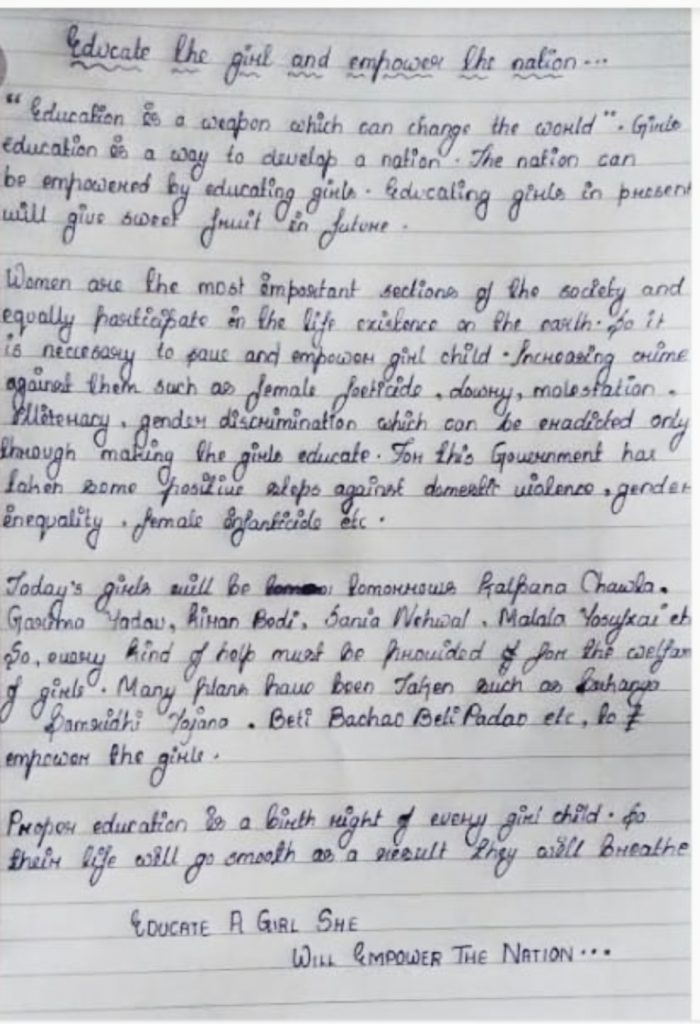 Educate the girl and empower the nation...
"Education is a weapon which can change the world". Girls
education is a way to develop a nation. The nation can
be empowered by educating girls. Educating girls in present
will give sweet fruit in future.
Women are the most important sections of the society and
equally participate in the life existence on the earth. So it
is necessary to save and empower girl child. Increasing crime
against them such as female foeticide, dowry, molestation.
Illiteracy, gender discrimination which can be eradicted only
through making the girls educate. For this Government has
taken some positive steps against domestic violence, gender
inequality, female infanticide etc.
Today's girls will be tomorrows Kalpana Chawla.
Garima Yadav, Kiran Bedi, Sania Nehwal, Malala Yosufxai etc
So, every kind of help must be provided for the welfar
of girls. Many plans have been Taken such as Sukanya
Samridhi Yojana. Beti Bachao Beti Padao etc, to
empower the girls.
Proper education is a birth right of every girl child. So
their life will go smooth as a result they will breathe
EDUCATE A GIRL SHE
WILL EMPOWER THE NATION...